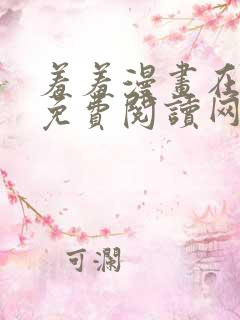 羞羞漫畫在
免費閱讀网
可瀾